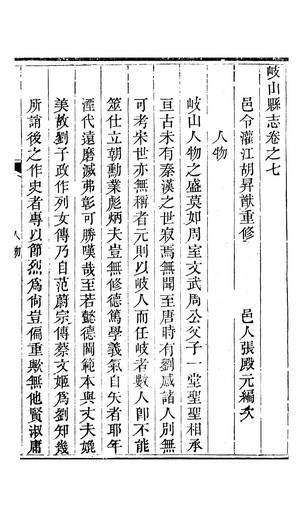 岐山縣志卷之七
邑令灌江胡昇猷重修　邑人張殿元編次
人物
岐山人物之盛莫如周室文武周公父子一堂聖聖相承
亘古未有秦漢之世寂焉無聞至唐時有劉咸諸人別無
可考宋世亦無稱者元則以岐人而任岐者數人卽不能
筮仕立朝勳業彪炳夫豈無修德篤學義氣自矢者耶年
湮代遠磨滅弗彰可勝嘆哉至若懿德閫範本與丈夫媲
美故劉子政作列女傳乃自范蔚宗傳蔡文姬爲劉知幾
所誚後之作史者專以節烈爲尙豈偏重歟無他賢淑庸
人物